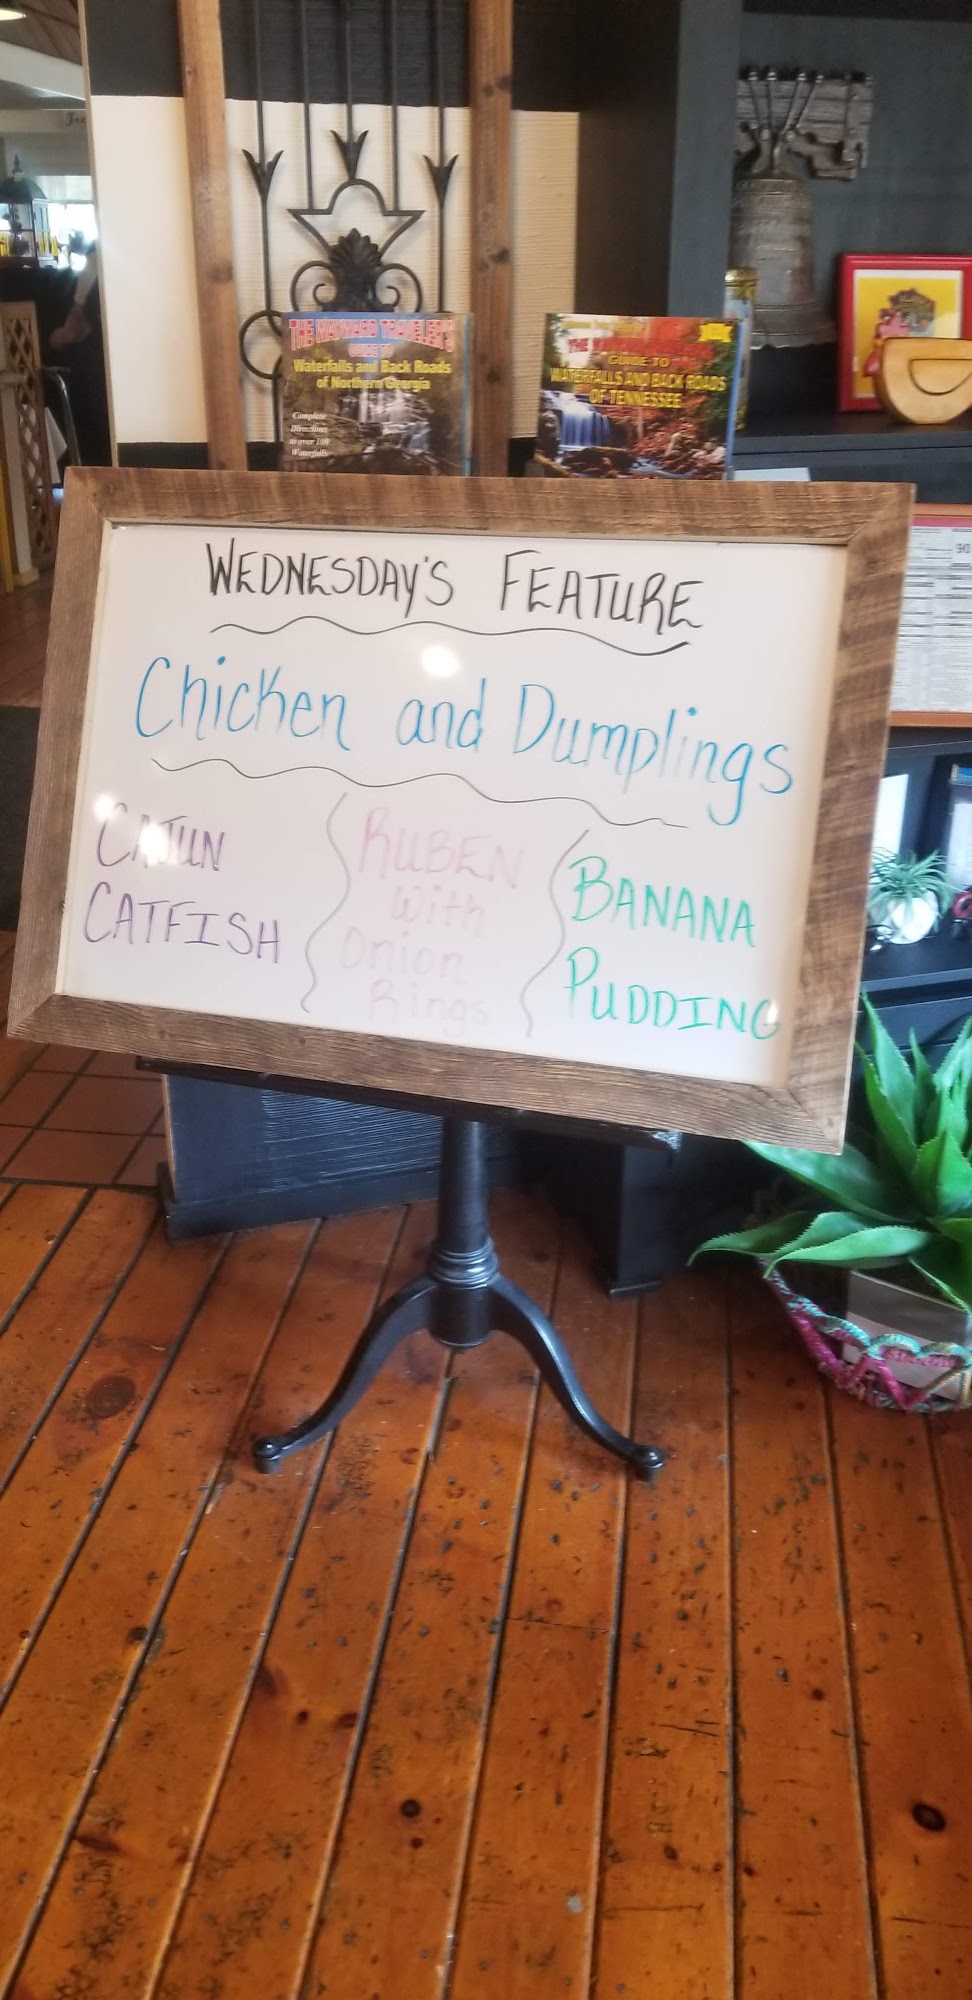 THE WAYWARD TRAVELER'S
GUIDE TO
Waterfalls and Back Roads
of Northern Georgia
Complete
Directions
to over 100
Waterfalls
THE
GUIDE TO
WATERFALLS AND BACK ROADS
OF TENNESSEE
WEDNESDAY'S FEATURE
Chicken and Dumplings
CAJUN
CATFISH
RUBEN
With
Onion
Rings
BANANA
PUDDING